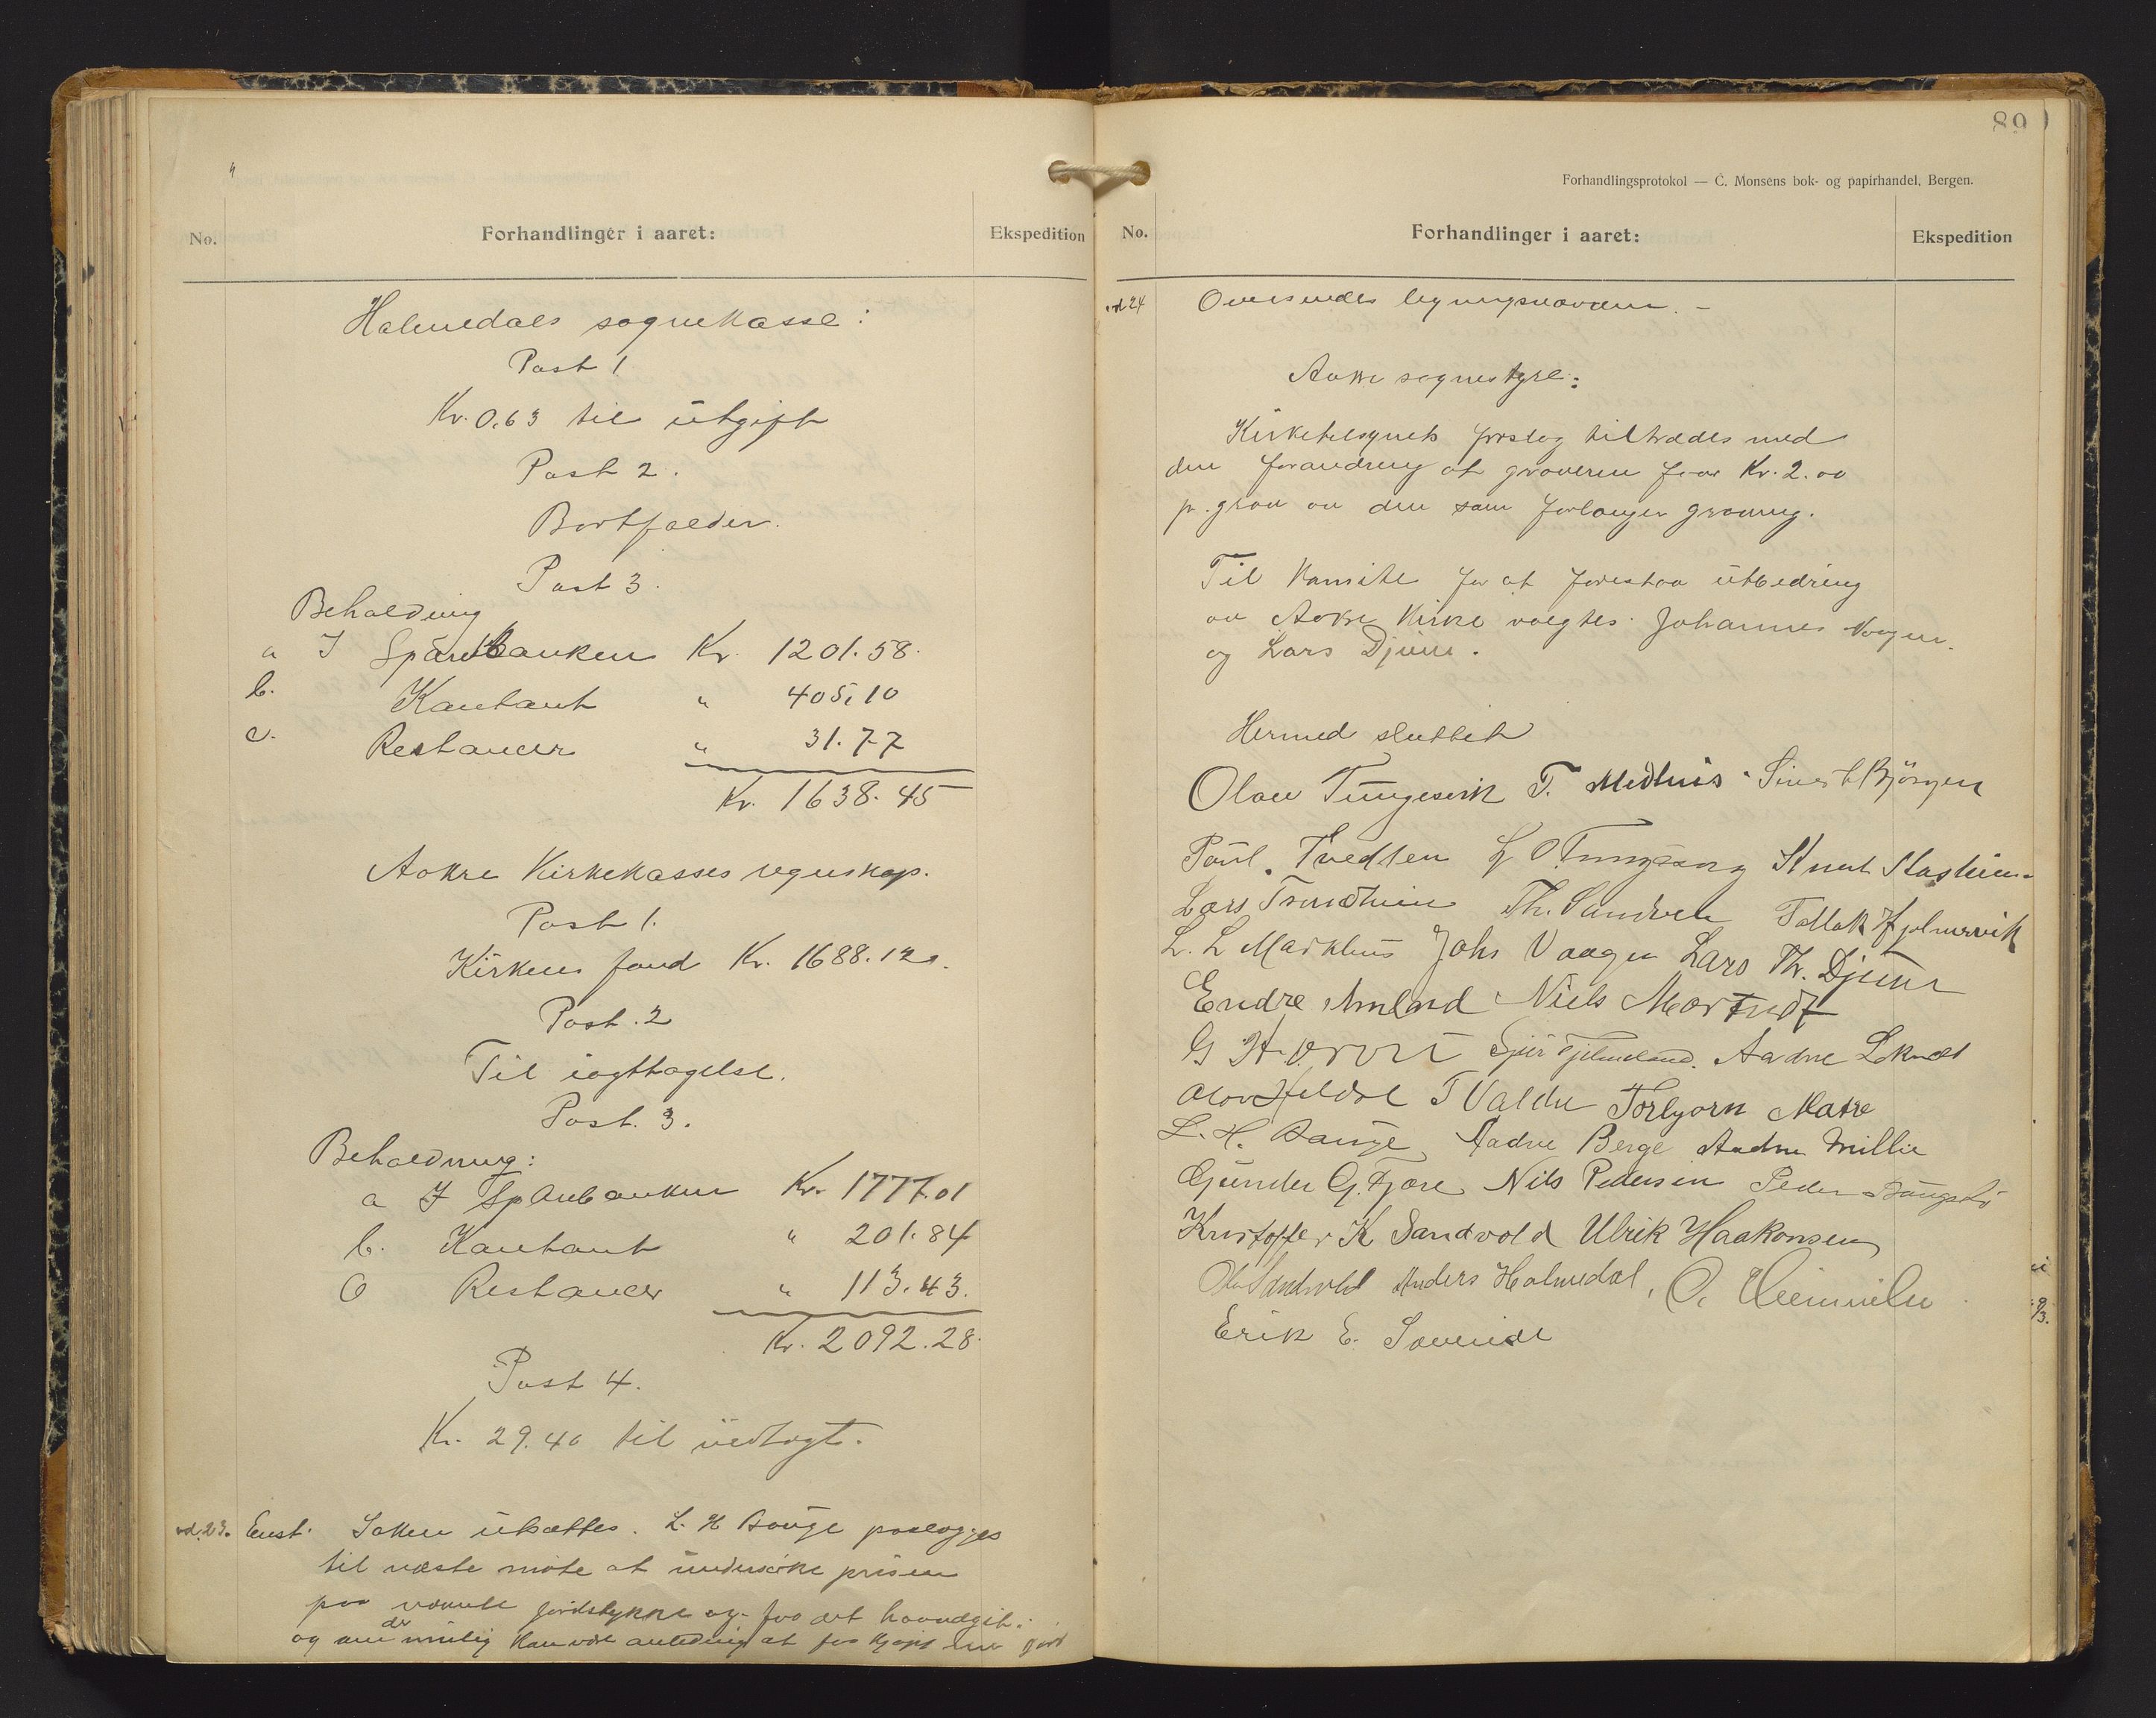 No.
Forhandlinger i aaret:
Ekspedition
Holmedals sognekasse:
Post 1
Kr. 0.63 til utgift
Post 2.
Bortfalder.
Post 3.
Beholdning
a I Sparebanken Kr. 1201.58.
b. Kontant " 405.10
c. Restancer " 31.77
Kr. 1638.45
Aakre Kirkekasses regnskap.
Post 1.
Kirkens fond Kr. 1688.12
Post. 2
Til iagttagelse.
Post. 3.
Beholdning:
a I Sparebanken Kr. 1777.01
b. Kontant " 201.84
c Restancer " 113.43.
Kr. 2092.28.
Post 4.
Kr. 29.40 til utgift.
ad. 23. Enst. Saken utsættes. L. H Bauge paalægges
til næste møte at undersøke prisen
paa nævnte jordstykke og faa det
og om der mulig kan være anledning at faa kjøpt
89
Forhandlingsprotokol — C. Monsens bok- og papirhandel, Bergen.
No.
Forhandlinger i aaret:
Ekspedition
ad 24 Oversendes ligningsnævnden. -
Aakre sognestyre:
Kirketilsynets forslag tiltrædes med
den forandring at graveren faar Kr. 2.00
pr. grav av den som forlanger graving.
Til komite for at forestaa utbedring
av Aakre kirke valgtes Johannes Vaagen
og Lars Djuve.
Hermed sluttet
Olav Tungesvik T. Medhus Sivert Bjørgen
Paul. Tvedten Knut
Lars Th. Sandven Tollak
L. L Markhus Johs Vaagen Lars Th. Djuve
Endre Niels
G Aadne
T Valdu Torbjørn Matre
L. H. Bauge Aadne Berge Aadne Millie
Gunder G. Fjøre Nils Pedersen Peder
Kristoffer K Sandvold Ulrik Haakonsen
Ola Sandvold Anders Holmedal, O.
Erik E.